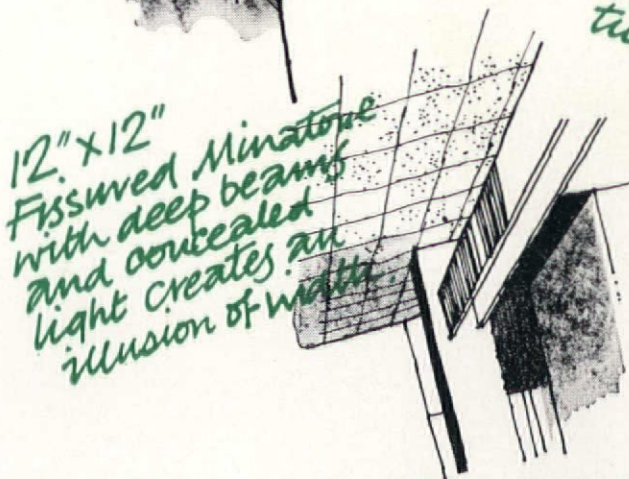 tu
12" x 12"
Fissured Minatone
with deep beams
and concealed
light creates an
illusion of width.